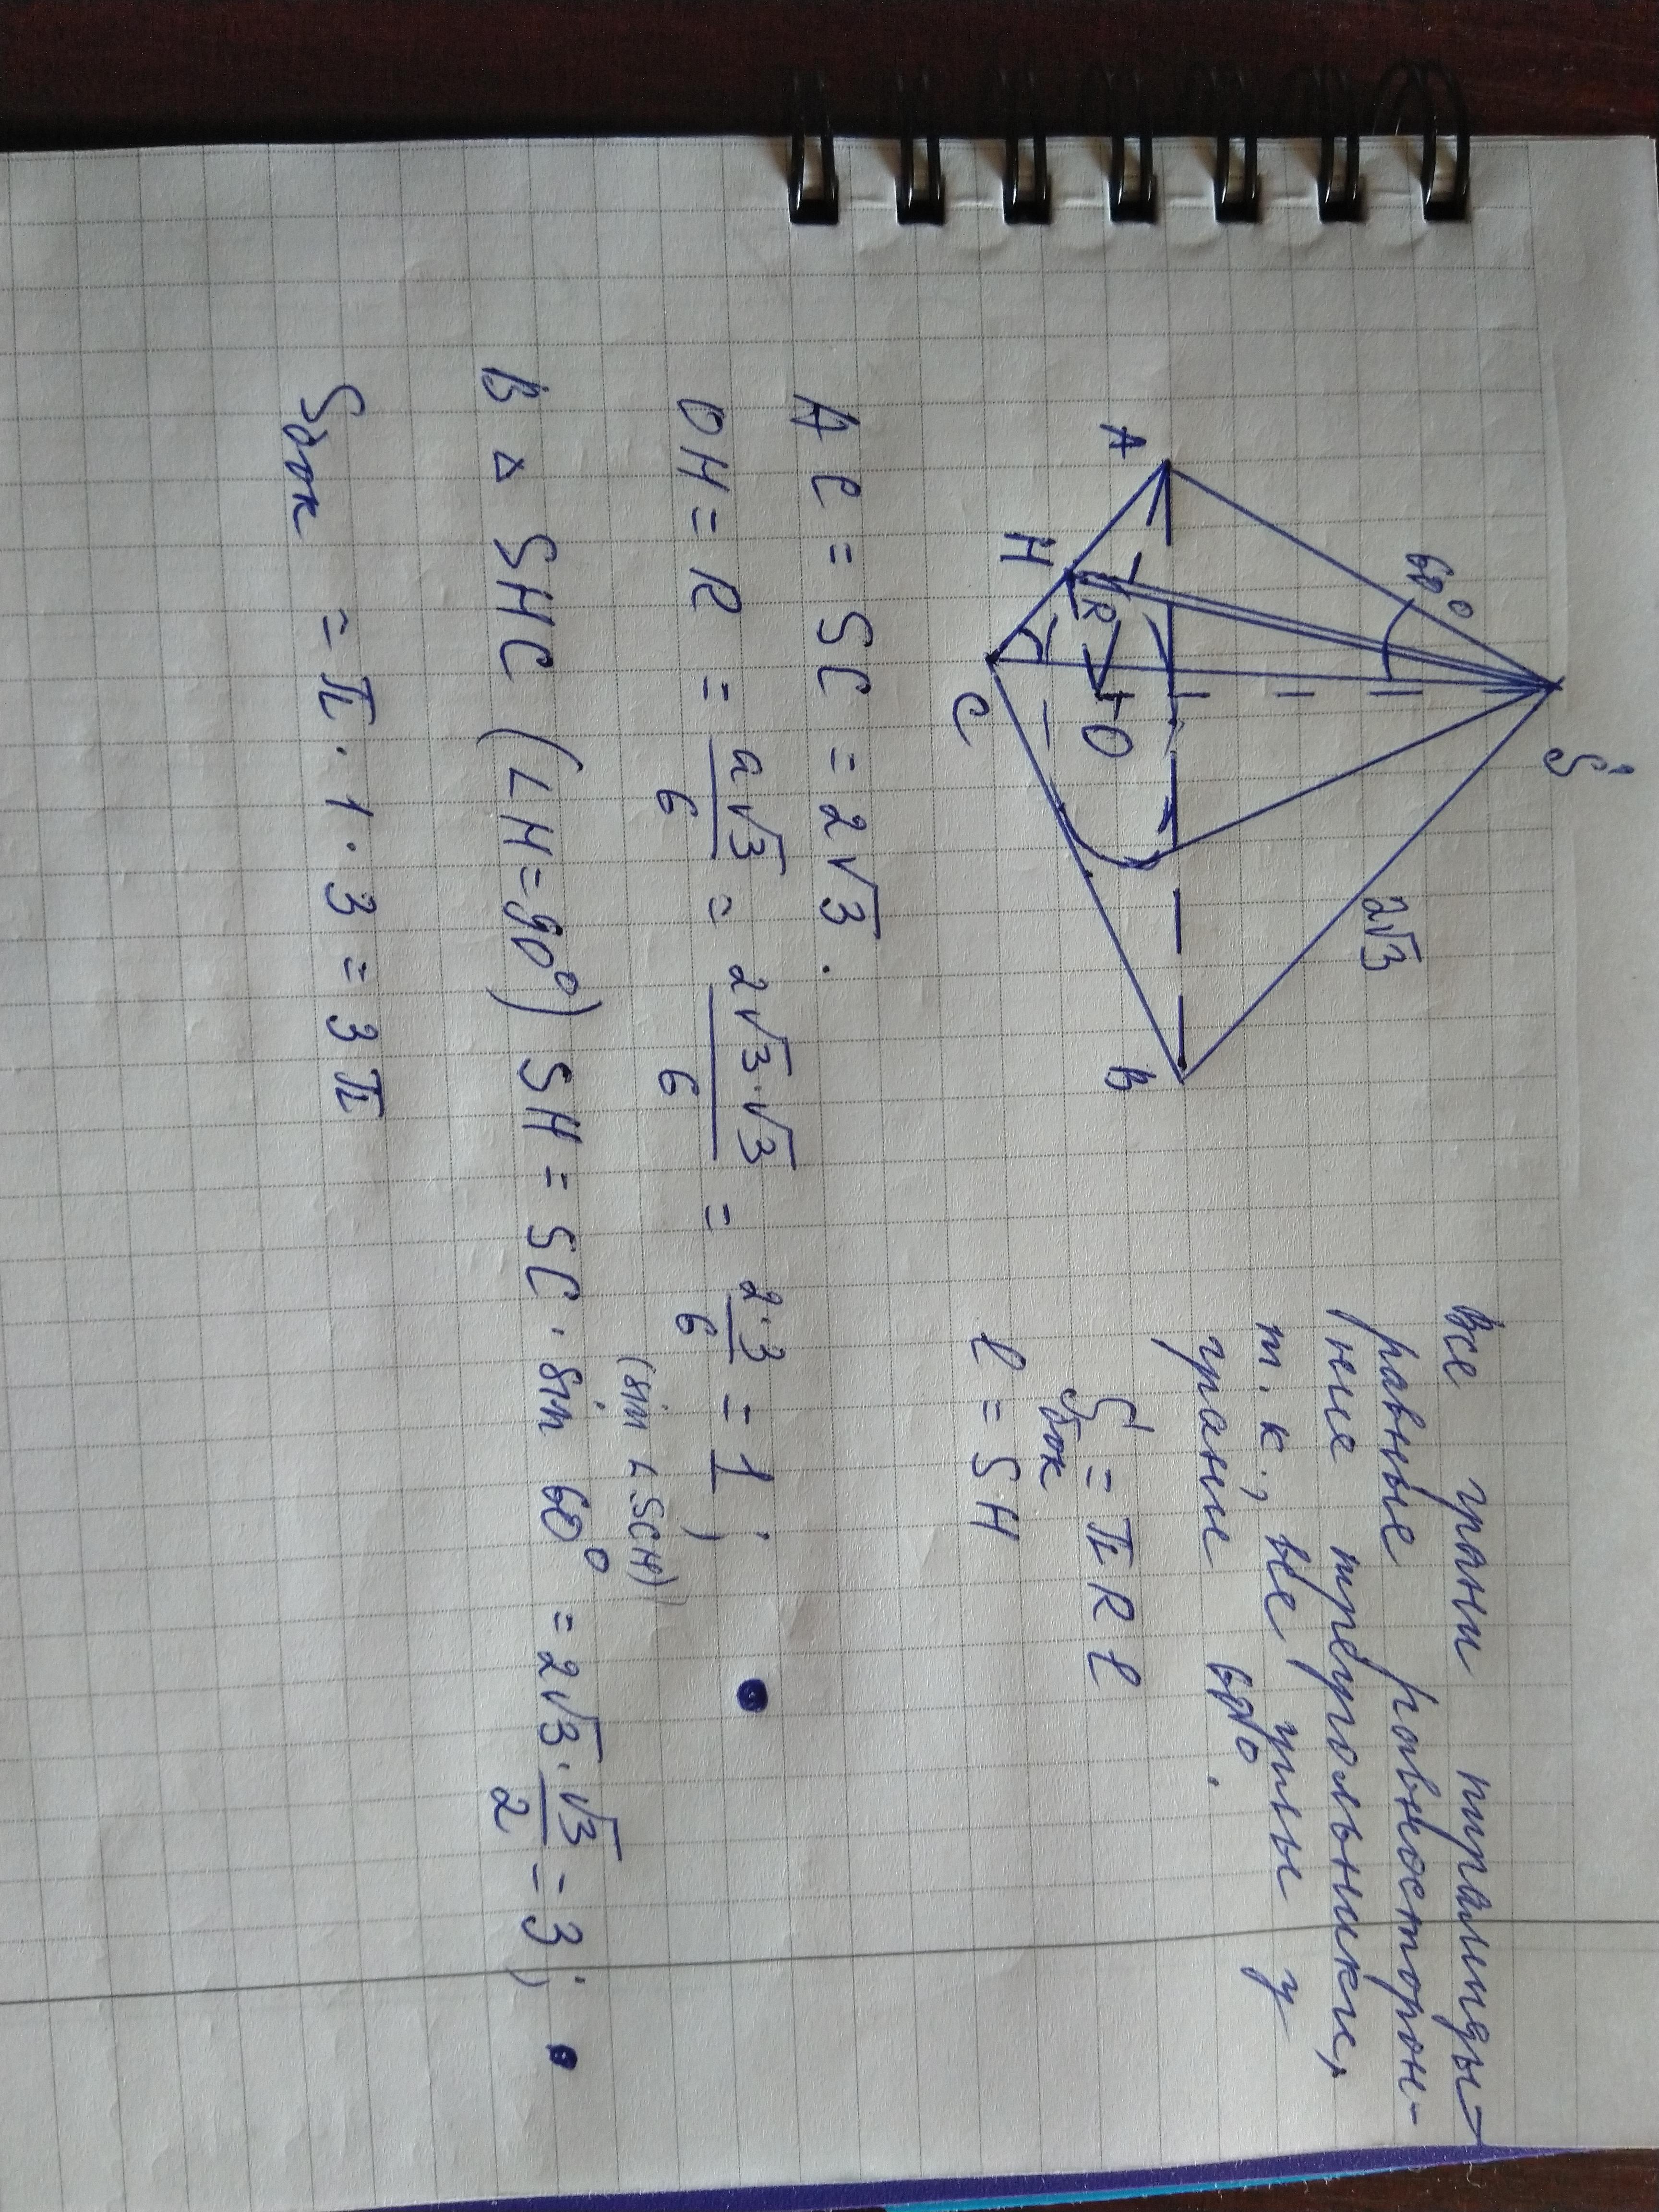 S
60°
2√3
A
H
R
O
C
B
Все грани пирамиды –
равные равносторон-
ние треугольники,
т.к., все углы у
грани 60°.
Sбок = πRl
l = SH
AC = SC = 2√3.
OH = R = a√3/6 = 2√3·√3/6 = 2·3/6 = 1;
(sin ∠SCH)
В △ SHC (∠H=90°) SH = SC · sin 60° = 2√3·√3/2 = 3;
Sбок = π · 1 · 3 = 3π